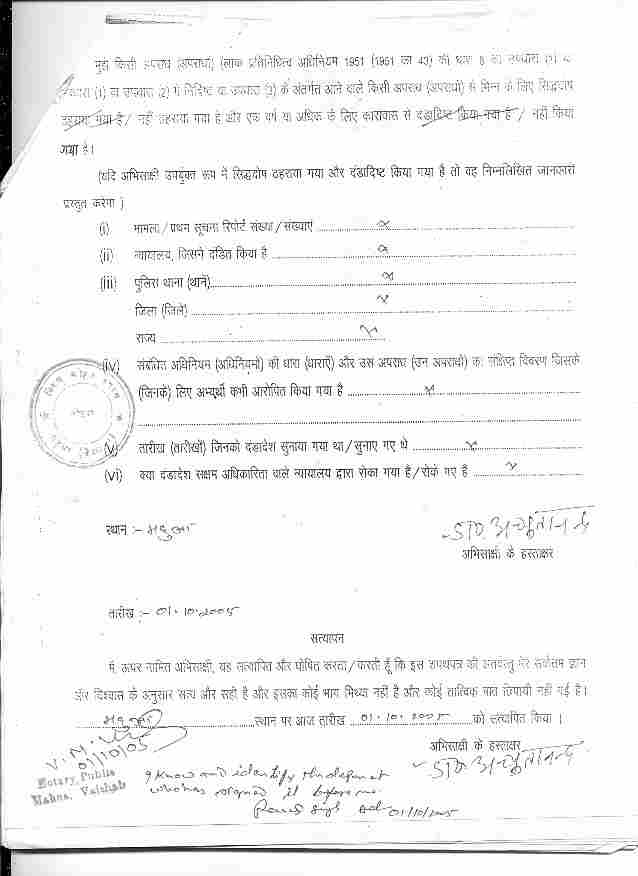 मुझे किसी अपराध (अपराधों) (लोक प्रतिनिधित्व अधिनियम 1951 (1951 का 43) की धारा 8 की उपधारा
उपधारा (1) या उपधारा (2) में निर्दिष्ट या उपधारा (3) के अंतर्गत आने वाले किसी अपराध (अपराधों) से भिन्न के लिए सिद्धदोष
ठहराया गया है / नहीं ठहराया गया है और एक वर्ष या अधिक के लिए कारावास से दंडादिष्ट किया गया है / नहीं किया
गया है।
(यदि अभिसाक्षी उपर्युक्त रूप में सिद्धदोष ठहराया गया और दंडादिष्ट किया गया है तो वह निम्नलिखित जानकारी
प्रस्तुत करेगा )
(i) मामला / प्रथम सूचना रिपोर्ट संख्या / संख्याएं ........ x ........
(ii) न्यायालय, जिसने दंडित किया है ........ x ........
(iii) पुलिस थाना (थाने) ........ x ........
जिला (जिले) ........ x ........
राज्य ........ x ........
(iv) संबंधित अधिनियम (अधिनियमों) की धारा (धाराएँ) और उस अपराध (उन अपराधों) का संक्षिप्त विवरण जिसके
(जिनके) लिए अभ्यर्थी कभी आरोपित किया गया है ........ x ........
(v) तारीख (तारीखों) जिनको दंडादेश सुनाया गया था / सुनाए गए थे ........ x ........
(vi) क्या दंडादेश सक्षम अधिकारिता वाले न्यायालय द्वारा रोका गया है / रोके गए है ........ x ........
स्थान :- महुआ
डा० अच्युतानन्द
अभिसाक्षी के हस्ताक्षर
तारीख :- 01.10.2005
सत्यापन
मैं, ऊपर नामित अभिसाक्षी, यह सत्यापित और घोषित करता / करती हूँ कि इस शपथपत्र की अंतर्वस्तु मेरे सर्वोत्तम ज्ञान
और विश्वास के अनुसार सत्य और सही है और इसका कोई भाग मिथ्या नहीं है और कोई तात्विक बात छिपायी नहीं गई है।
महुआ ........ स्थान पर आज तारीख 01.10.2005 ........ को सत्यापित किया ।
अभिसाक्षी के हस्ताक्षर
डा० अच्युतानन्द
01/10/05
Notary Public
Mahua, Vaishali
I know and identify the deponent
who has signed it before me.
01/10/2005